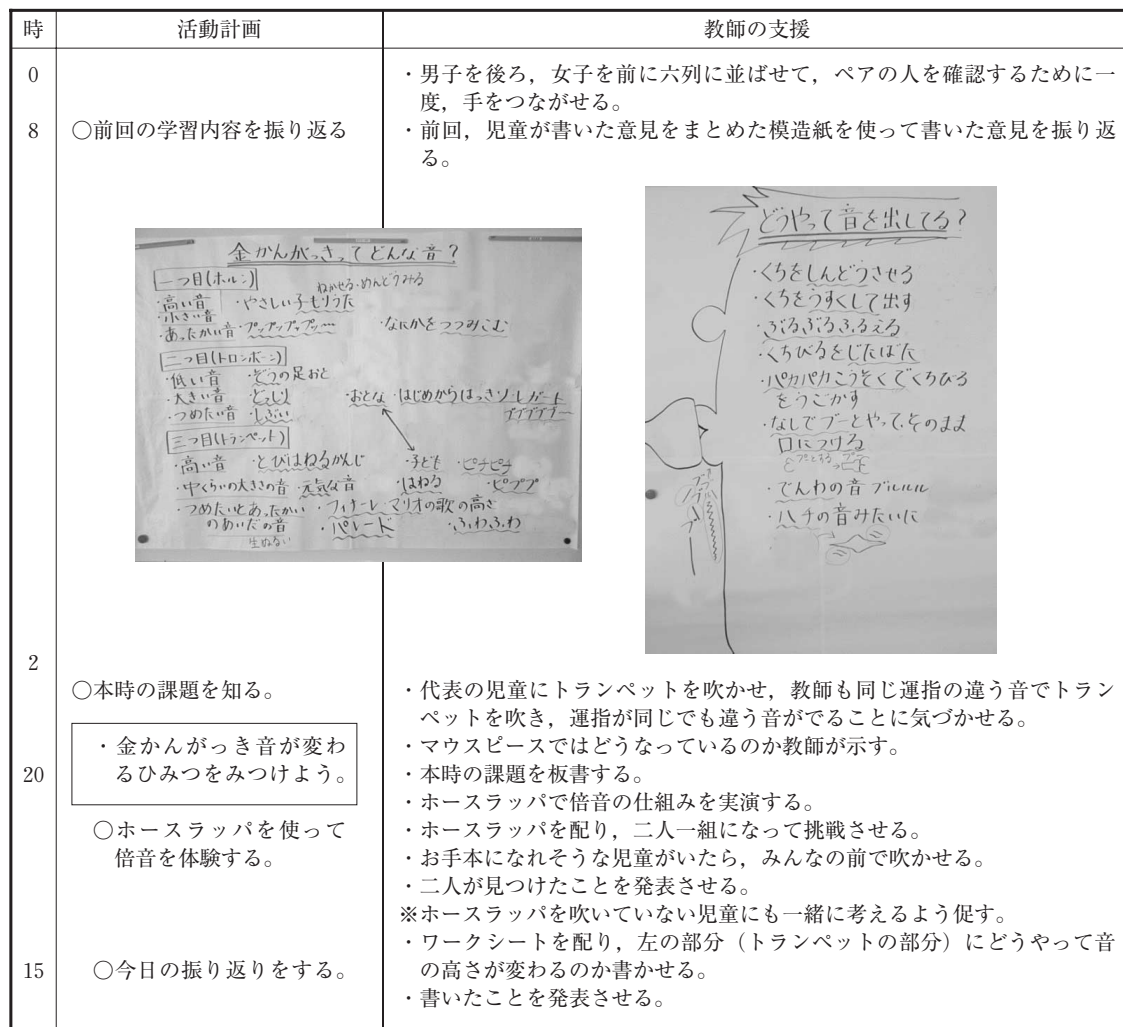 時 活動計画 教師の支援
0 ・男子を後ろ，女子を前に六列に並ばせて，ペアの人を確認するために一
度，手をつながせる。
8 ○前回の学習内容を振り返る ・前回，児童が書いた意見をまとめた模造紙を使って書いた意見を振り返
る。
金かんがっきってどんな音？
一つ目(ホルン)
ねかせる・めんどうみる
・高い音 ・やさしい子もりうた
・小さい音
・あったかい音 ・プップップップッ… ・なにかをつつみこむ
二つ目(トロンボーン)
・低い音 ・ぞうの足おと
・大きい音 ・どっしり ・おとな ・はじめからはっきり・レガート
・つめたい音 ・しぶい ブブブブブー
三つ目(トランペット)
・高い音 ・とびはねるかんじ ・子ども ・ピチピチ
・中くらいの大きさの音 ・元気な音 ・はねる ・ピプププ
・つめたいとあったかい ・フィナーレ、マリオの歌の高さ
のあいだの音 ・パレード ・ふわふわ
生ぬるい
どうやって音を出してる？
・くちをしんどうさせる
・くちをうすくして出す
・ぶるぶるふるえる
・くちびるをじたばた
・パカパカこうそくでくちびる
をうごかす
・なしでブーとやって、そのまま
口につける
・でんわの音 ブルルル
・ハチの音みたいに
2
○本時の課題を知る。 ・代表の児童にトランペットを吹かせ，教師も同じ運指の違う音でトラン
ペットを吹き，運指が同じでも違う音がでることに気づかせる。
・金かんがっき音が変わ ・マウスピースではどうなっているのか教師が示す。
20 るひみつをみつけよう。 ・本時の課題を板書する。
・ホースラッパで倍音の仕組みを実演する。
○ホースラッパを使って ・ホースラッパを配り，二人一組になって挑戦させる。
倍音を体験する。 ・お手本になれそうな児童がいたら，みんなの前で吹かせる。
・二人が見つけたことを発表させる。
※ホースラッパを吹いていない児童にも一緒に考えるよう促す。
・ワークシートを配り，左の部分（トランペットの部分）にどうやって音
15 ○今日の振り返りをする。 の高さが変わるのか書かせる。
・書いたことを発表させる。